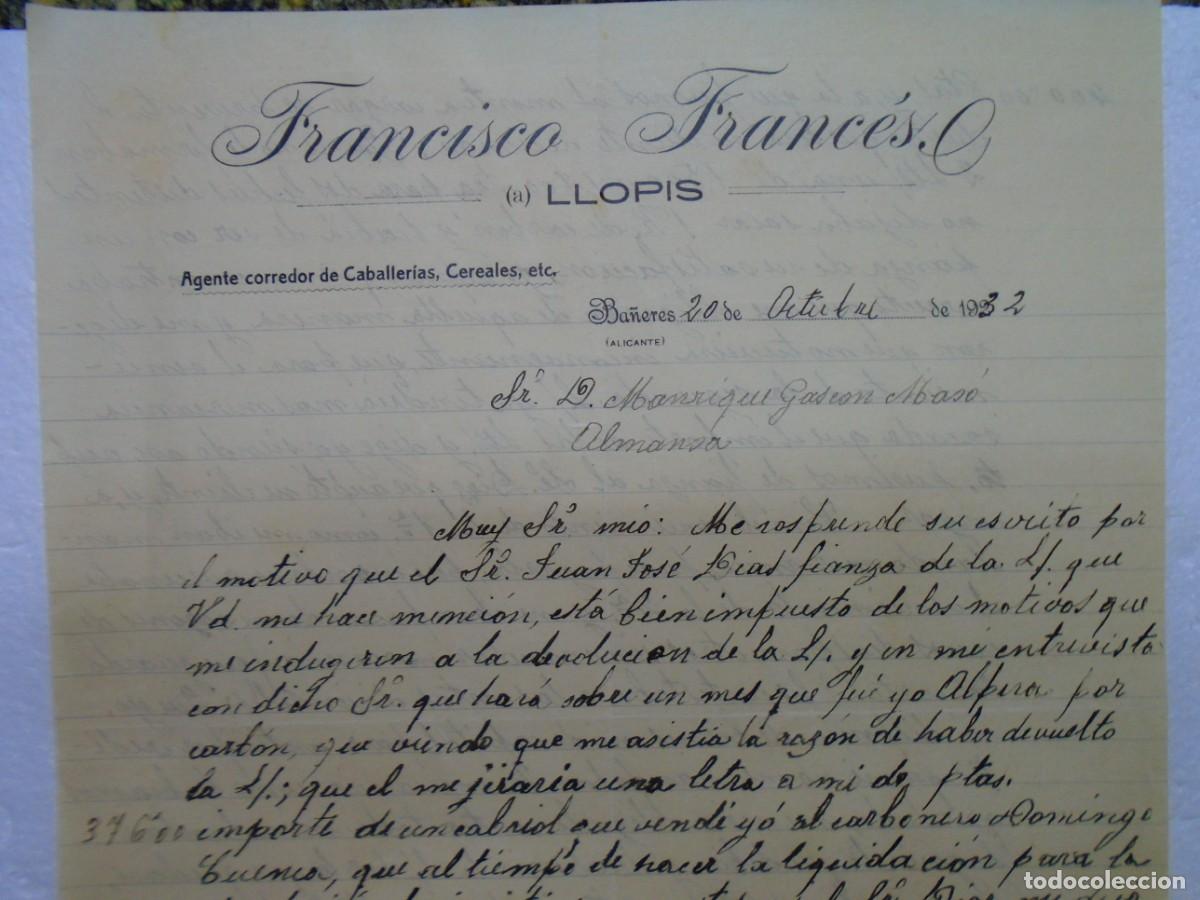 Francisco Francés.
(a) LLOPIS
Agente corredor de Caballerías, Cereales, etc.
Bañeres 20 de Octubre de 1932
(ALICANTE)
Sr. D. Manrique Gascon Masó
Almansa
Muy Sr. mio: Me sosprende su escrito por
el motivo que el Sr. Juan José Dias fianza de la L/. que
Vd. me hace mención, está bien impuesto de los motivos que
me indugeron a la devolucion de la L/. y en mi entrevista
con dicho Sr. que hará sobre un mes que fué yo Alpera por
carbón, que viendo que me asistia la razón de haber devuelto
la L/.; que el me jiraria una letra a mi de ptas.
376'00 importe de un cabriol que vendi yó al carbonero Domingo
Cuenca, que al tiempo de hacer la liquidación para la
todocoleccion